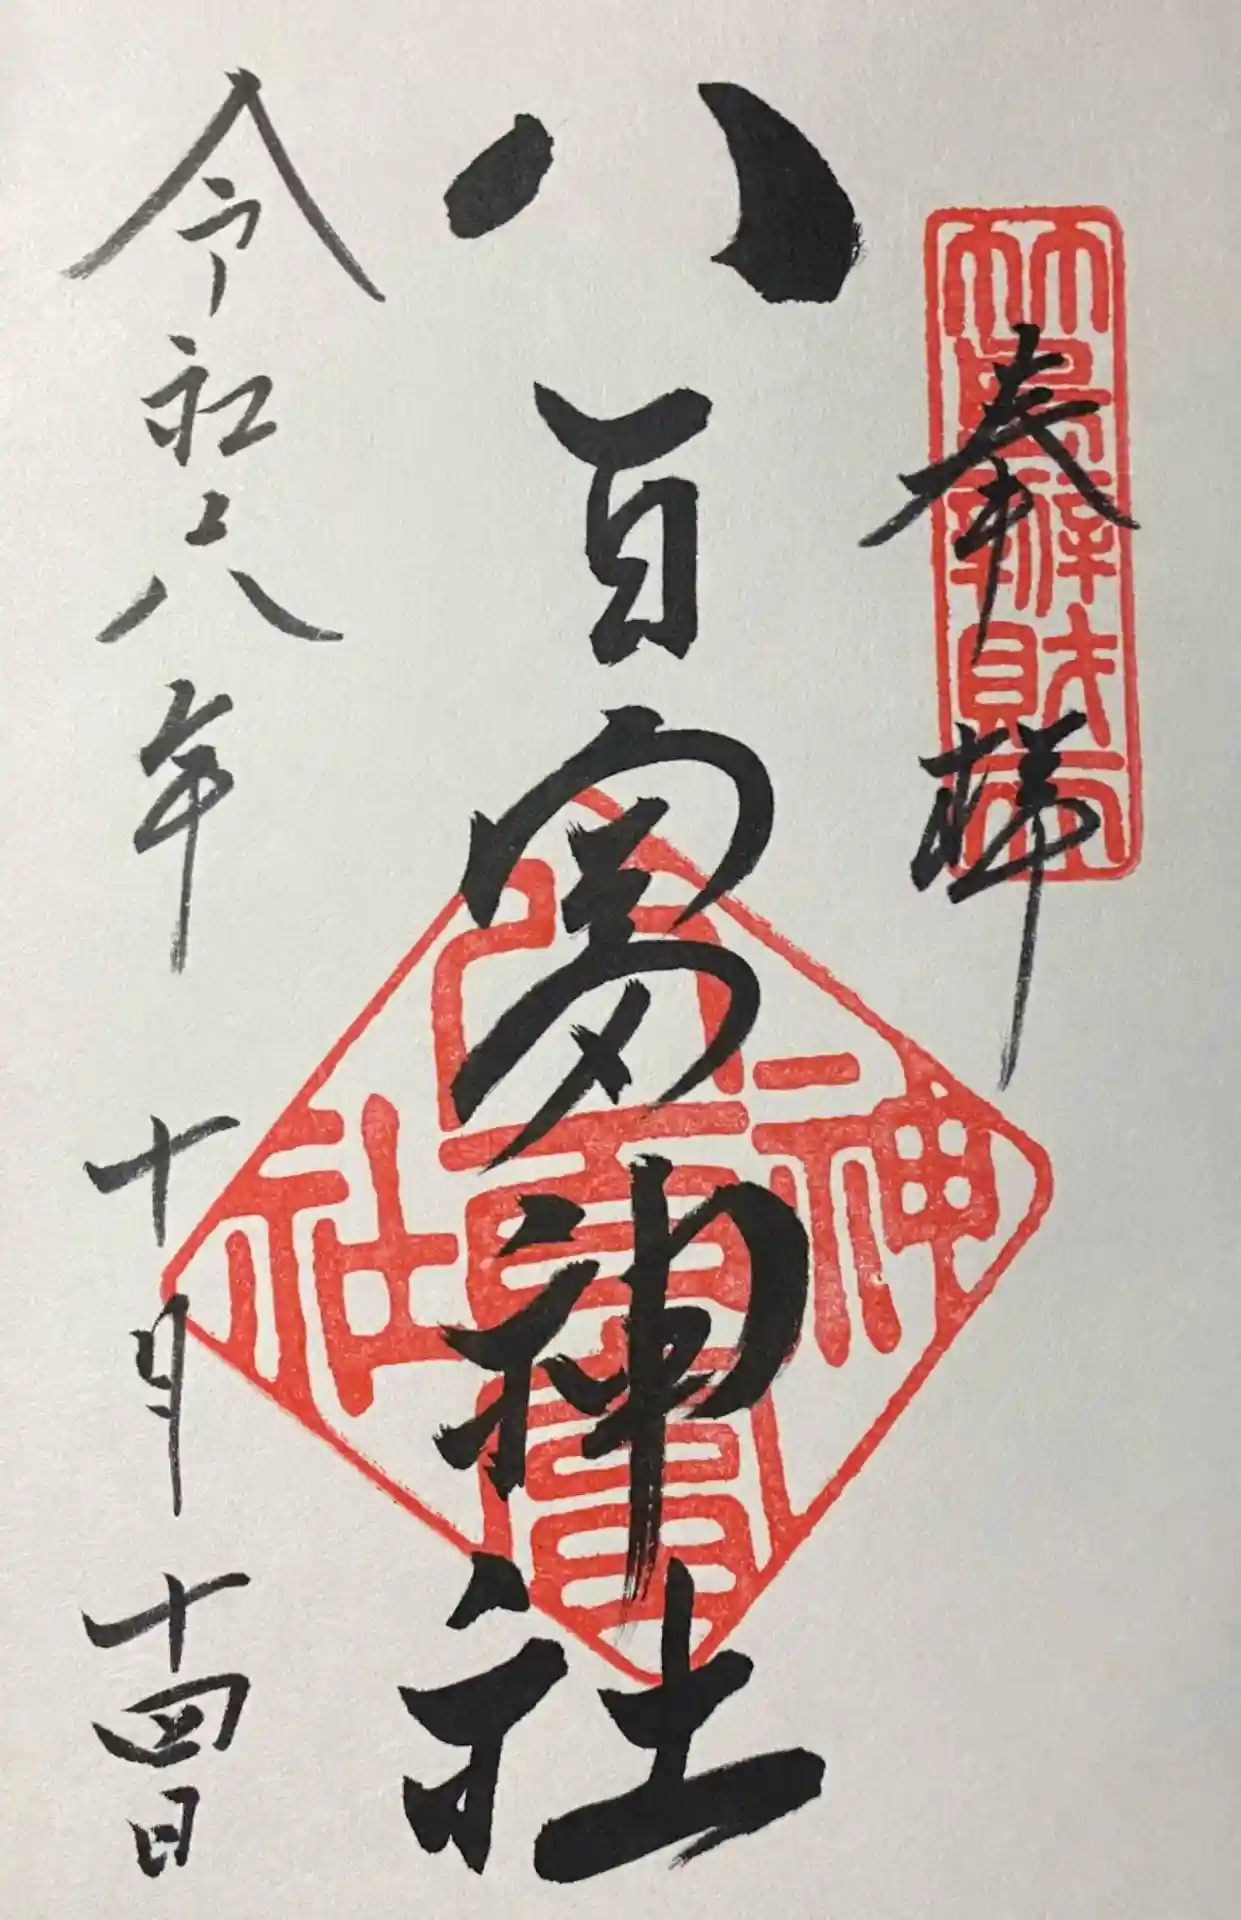 奉拝
竹島辨財天
八百富神社
八百富神社
令和六年 十月 十四日